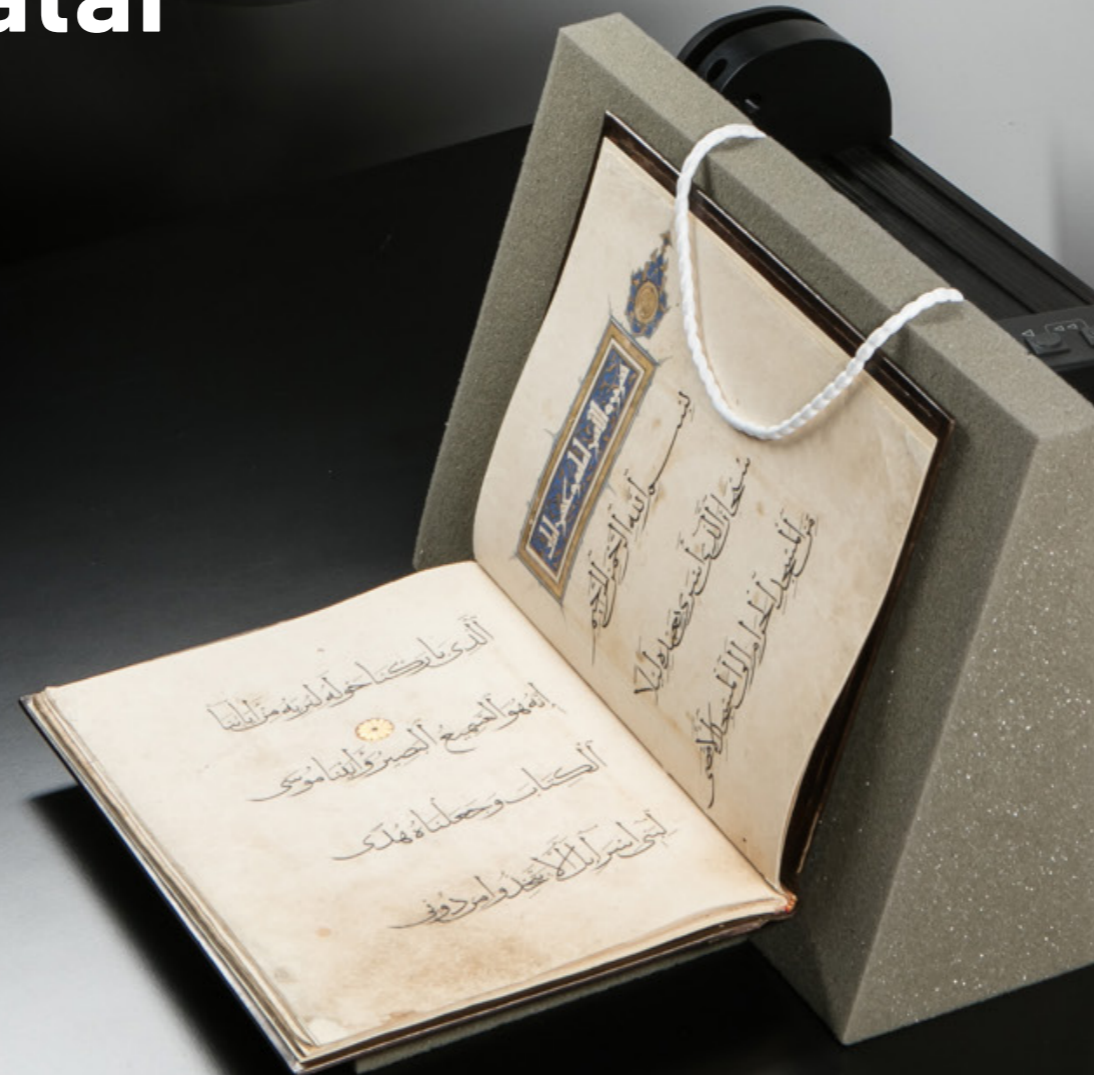 بسم الله الرحمن الرحيم
سبحان الذي أسرى بعبده ليلا
من المسجد الحرام إلى المسجد الأقصى
الذي باركنا حوله لنريه من اياتنا
إنه هو السميع البصير واتينا موسى
الكتاب وجعلناه هدى
لبني إسرايل ألا تتخذوا من دوني